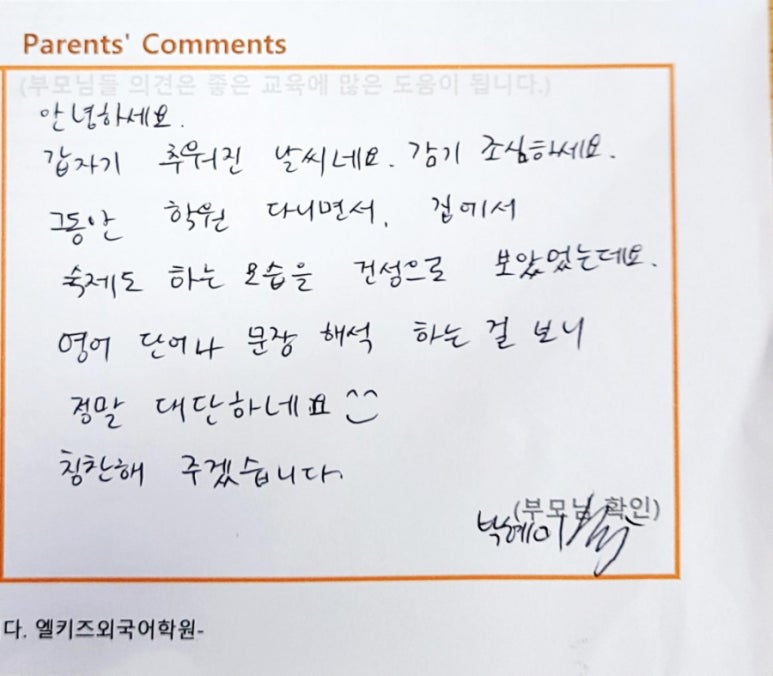 Parents' Comments
(부모님들 의견은 좋은 교육에 많은 도움이 됩니다.)
안녕하세요.
갑자기 추워진 날씨네요. 감기 조심하세요.
그동안 학원 다니면서, 집에서
숙제도 하는 모습을 건성으로 보았었는데요.
영어 단어나 문장 해석 하는 걸 보니
정말 대단하네요 ^^
칭찬해 주겠습니다.
(부모님 확인)
박혜이
다. 엘키즈외국어학원-